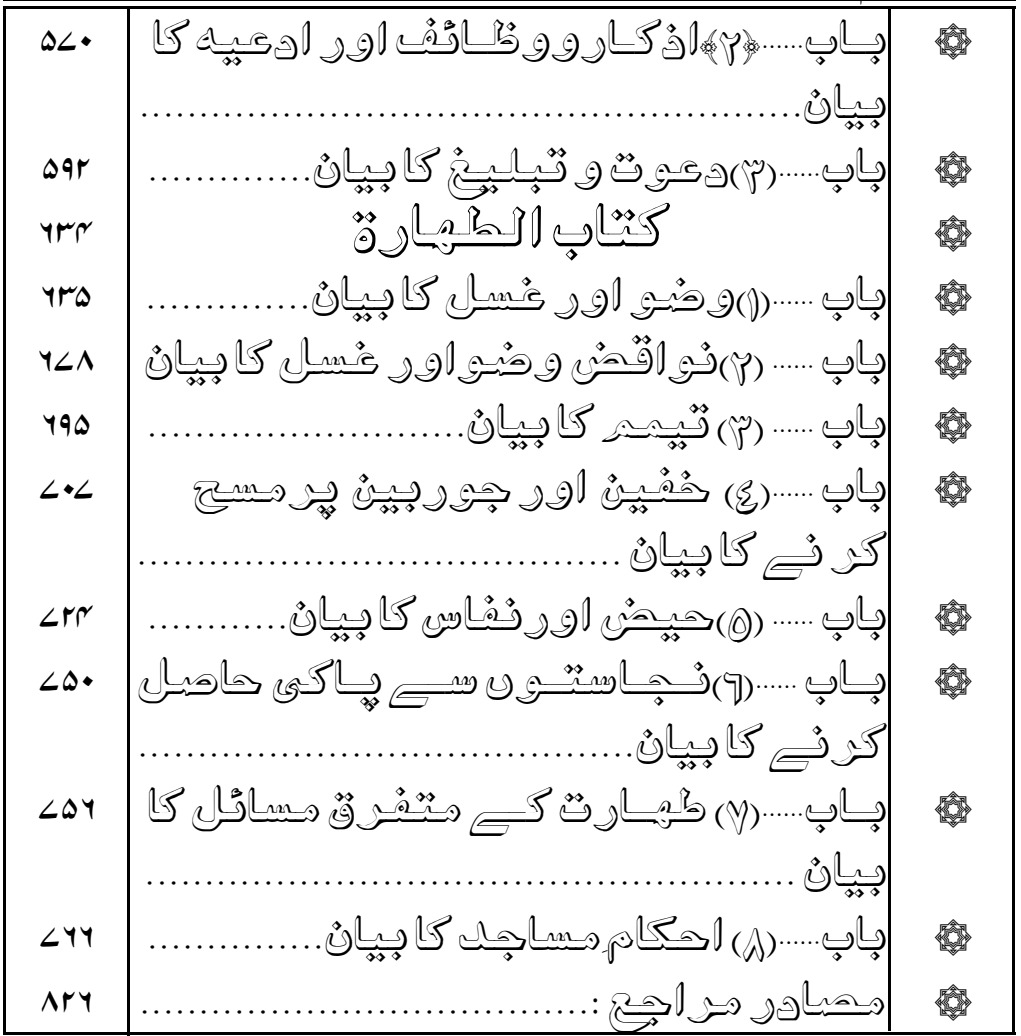 باب......﴿۲﴾اذکار و وظائف اور ادعیہ کا ۵۷۰
بیان....................................................
باب......(۳)دعوت و تبلیغ کا بیان.............. ۵۹۲
کتاب الطہارۃ ۶۳۴
باب ......(۱)وضو اور غسل کا بیان.............. ۶۳۵
باب ...... (۲)نواقض وضو اور غسل کا بیان ۶۷۸
باب ...... (۳) تیمم کا بیان.......................... ۶۹۵
باب ......(٤) خفین اور جوربین پر مسح ۷۰۷
کرنے کا بیان ......................................
باب ...... (۵)حیض اور نفاس کا بیان............ ۷۲۴
باب ......(٦)نجاستوں سے پاکی حاصل ۷۵۰
کرنے کا بیان......................................
باب......(۷) طہارت کے متفرق مسائل کا ۷۵۶
بیان ....................................................
باب......(۸) احکامِ مساجد کا بیان............... ۷۶۶
مصادر مراجع :...................................... ۸۲۶